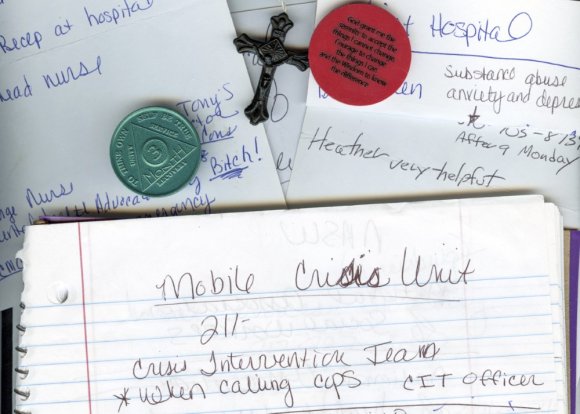 Recep at hospital
head nurse
Tony's
Bitch!
Nurse
Health Advocacy
God grant me the
serenity to accept the
things I cannot change,
Courage to change
the things I can
and the Wisdom to know
the difference
Hospital
Substance abuse
anxiety and depres
After 9 Monday
Heather very helpful
TO THINE OWN SELF BE TRUE
UNITY
SERVICE
RECOVERY
3
MONTH
Mobile Crisis Unit
211-
Crisis Intervention Team
*when calling cops CIT Officer